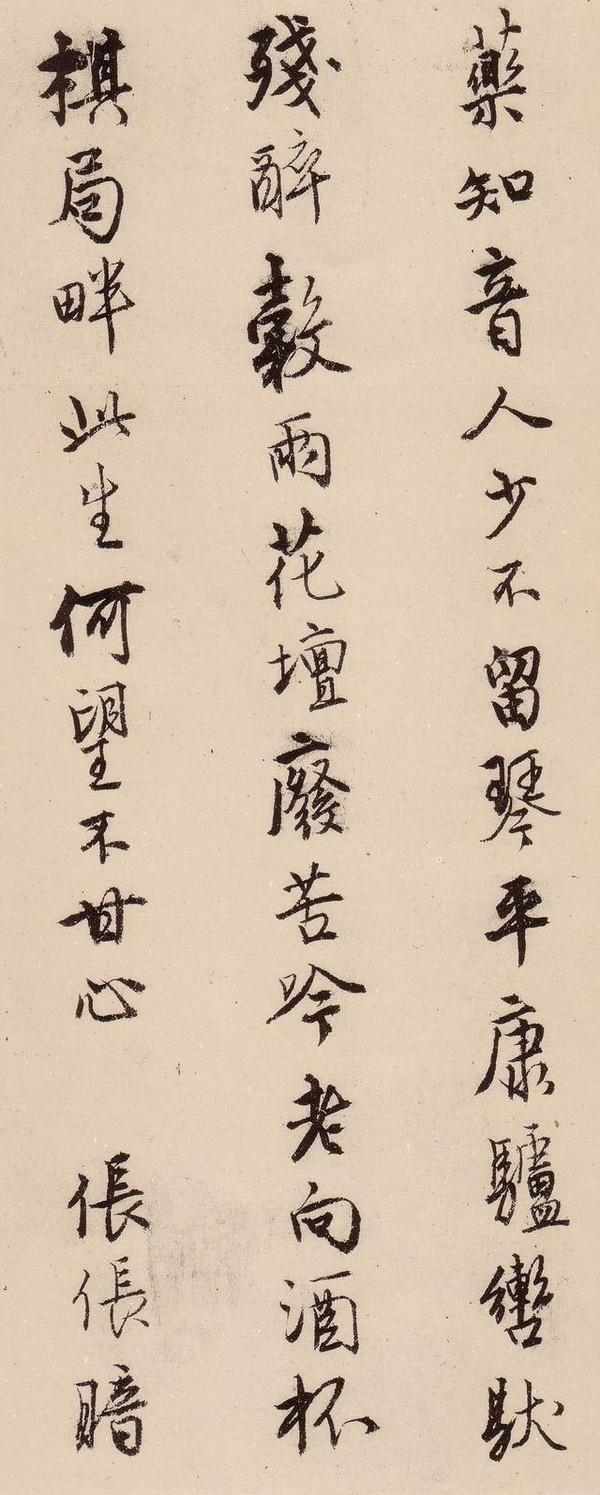 藥知音人少不留琴平康驢轡馱
殘醉穀雨花壇廢苦吟老向酒杯
棋局畔此生何望不甘心　倀倀暗